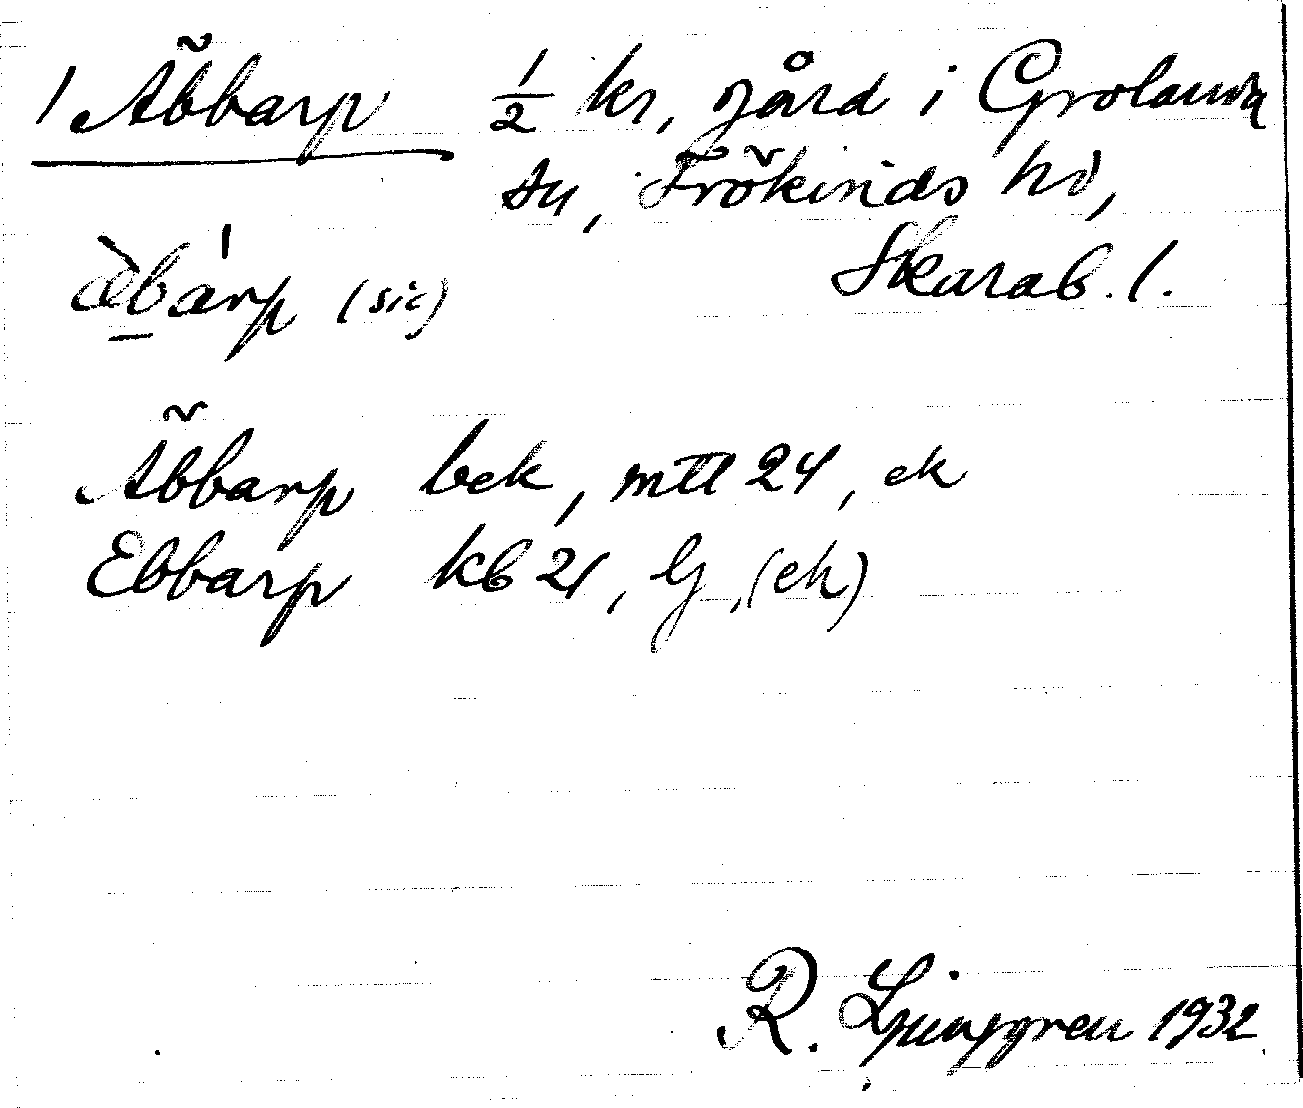 1 Äbbarp ½ kr, gård i Grolanda
sn, Frökinds hd,
Skarab. l.
æ̀bárp (sic)
Äbbarp bek, mtl 24, ek
Ebbarp kb 21, lj, (ek)
R. Ljunggren 1932